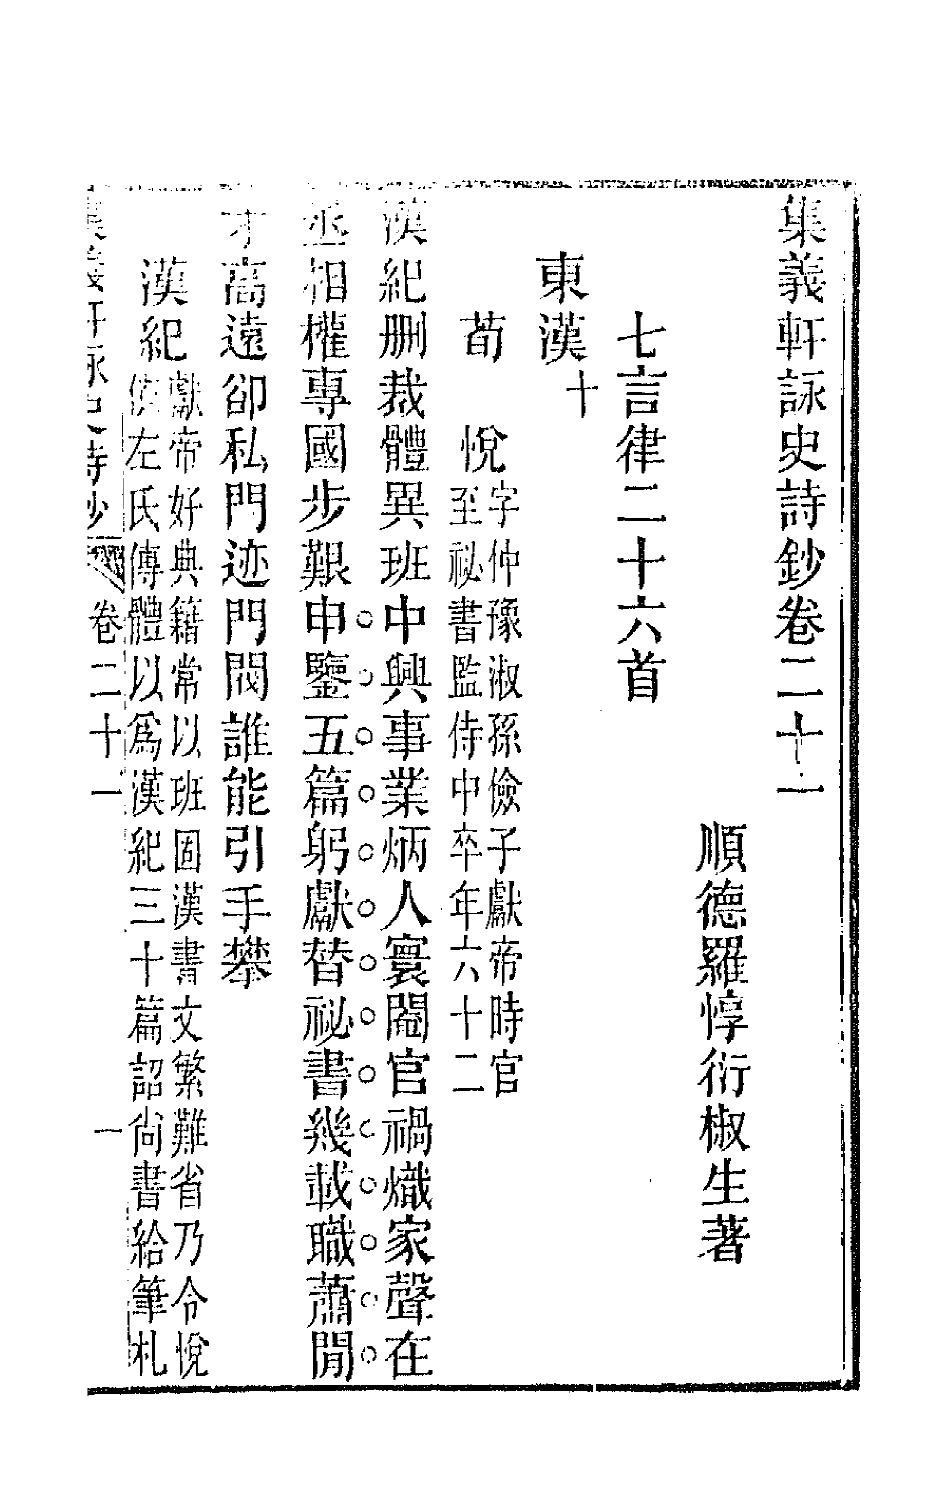 集義軒詠史詩鈔卷二十一
順德羅惇衍椒生著
七言律二十六首
東漢十
荀悅字仲豫淑孫儉子獻帝時官
至祕書監侍中卒年六十二
漢紀刪裁體異班中興事業炳人寰閹官禍熾家聲在
丞相權專國步艱申鑒五篇躬獻替祕書幾載職蕭閒
才高遠卻私門迹門閥誰能引手攀
漢紀獻帝好典籍常以班固漢書文繁難省乃令悅
依左氏傳體以為漢紀三十篇詔尙書給筆札
集義軒詠史詩鈔 卷二十一 一